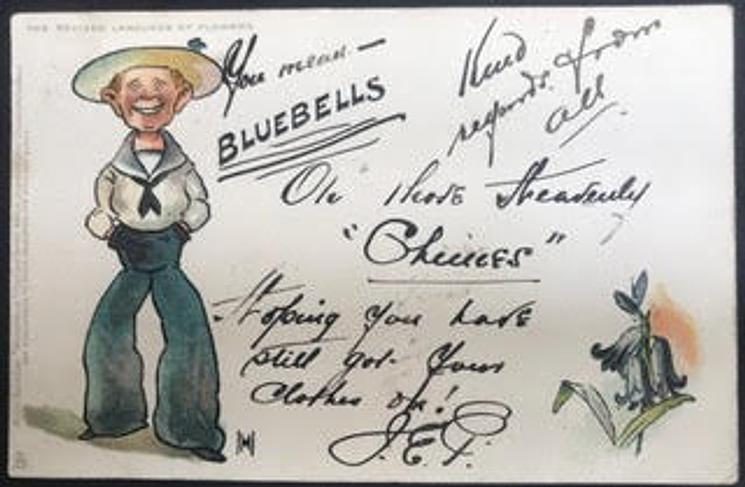 THE REVISED LANGUAGE OF FLOWERS.
You mean —
BLUEBELLS
Kind
regards from
all.
Oh those Heavenly
"Chimes"
Hoping you have
still got your
clothes on!
J.E.P.